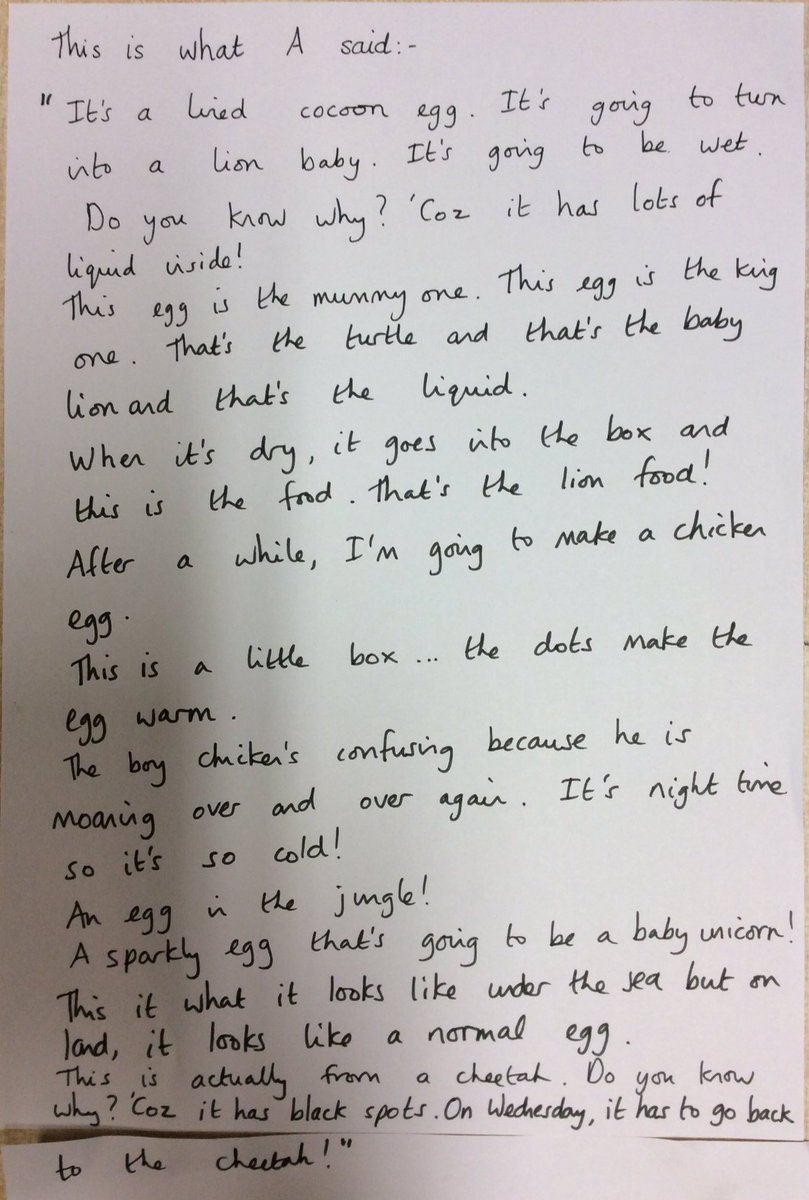 This is what A said:-
"It's a lined cocoon egg. It's going to turn
into a lion baby. It's going to be wet.
Do you know why? 'Coz it has lots of
liquid inside!
This egg is the mummy one. This egg is the king
one. That's the turtle and that's the baby
lion and that's the liquid.
When it's dry, it goes into the box and
this is the food. That's the lion food!
After a while, I'm going to make a chicken
egg.
This is a little box... the dots make the
egg warm.
The boy chicken's confusing because he is
moaning over and over again. It's night time
so it's so cold!
An egg in the jungle!
A sparkly egg that's going to be a baby unicorn!
This it what it looks like under the sea but on
land, it looks like a normal egg.
This is actually from a cheetah. Do you know
why? 'Coz it has black spots. On Wednesday, it has to go back
to the cheetah!"